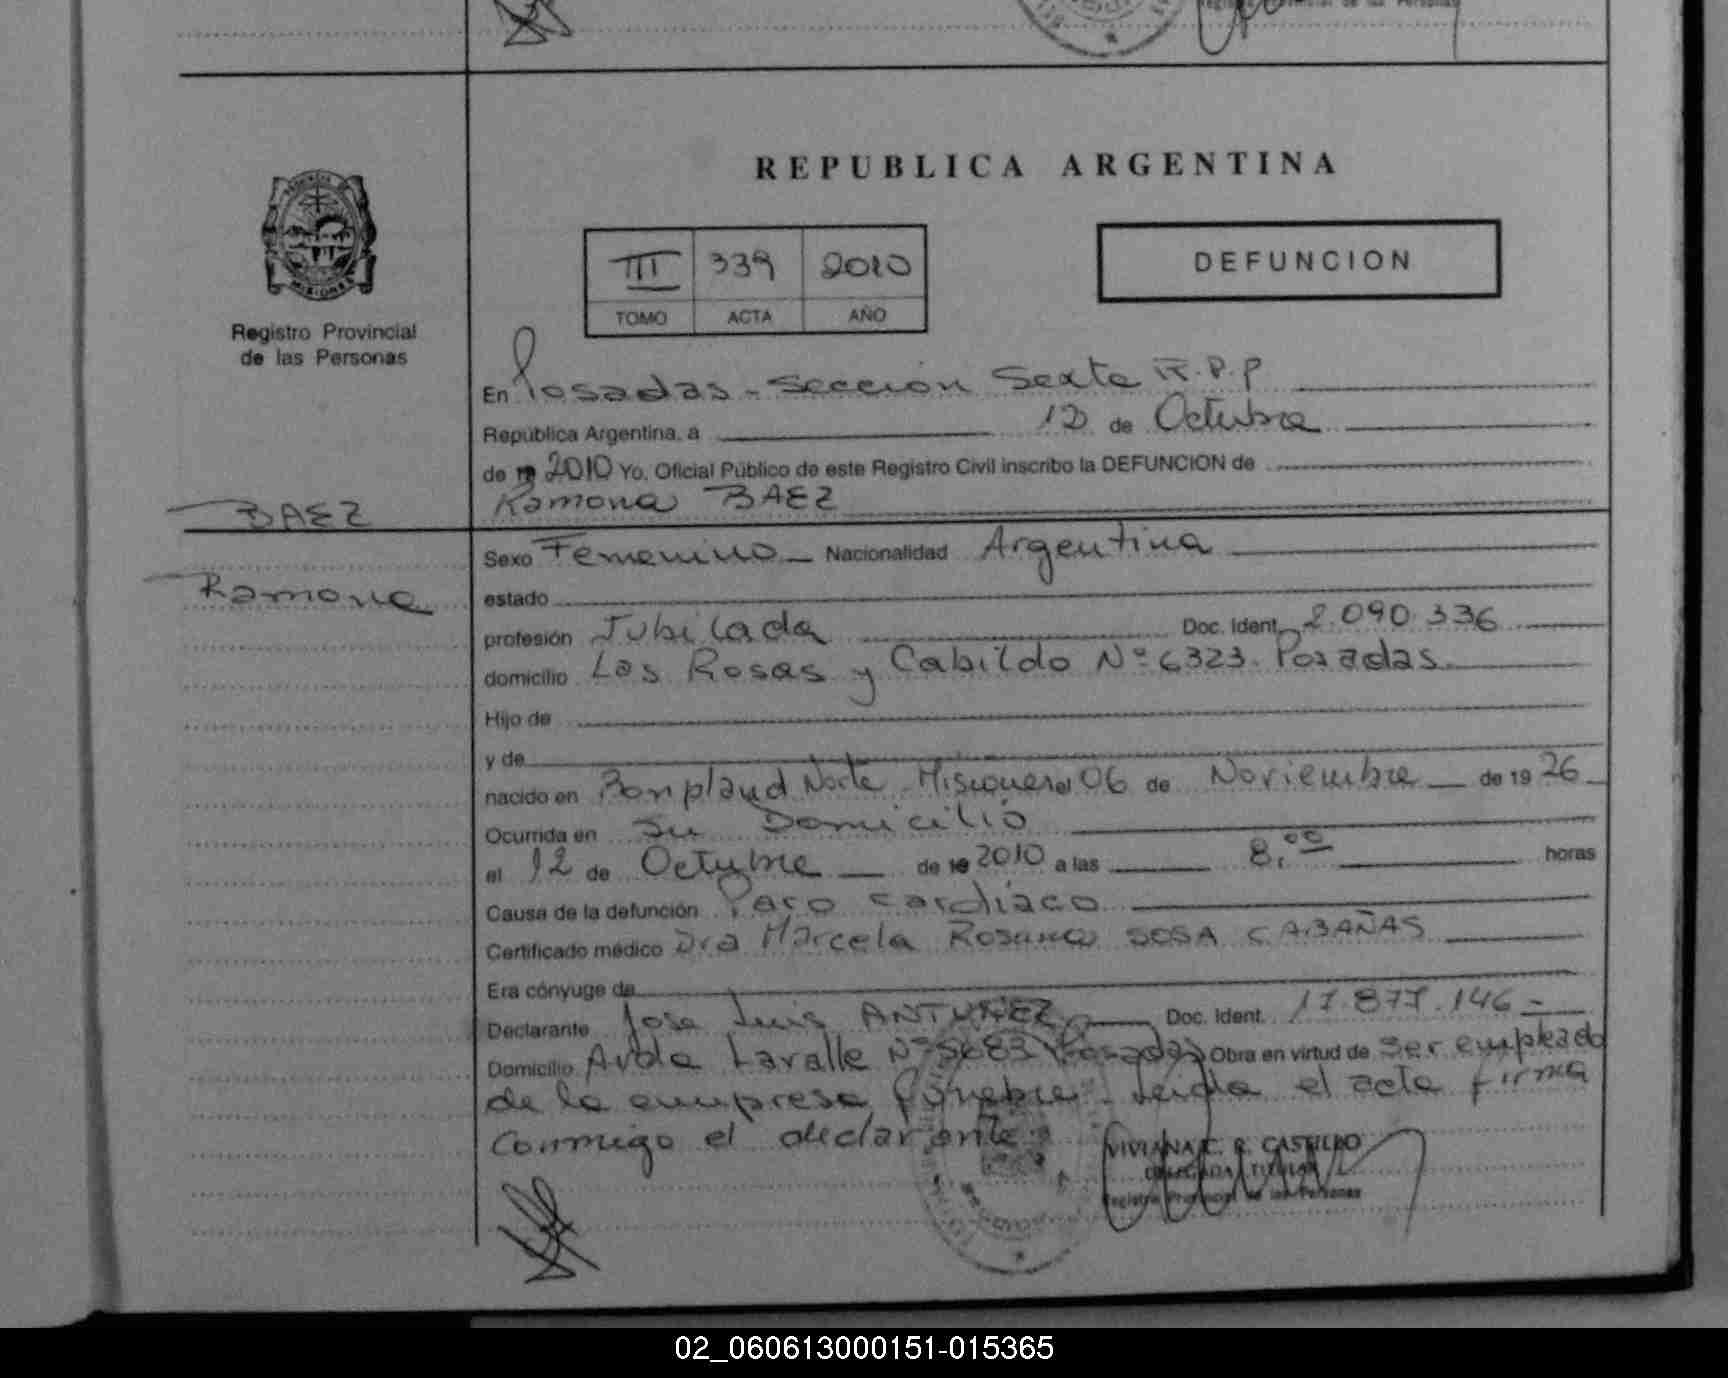 REPUBLICA ARGENTINA
III 339 2010
TOMO ACTA AÑO
DEFUNCION
MISIONES
Registro Provincial
de las Personas
En Posadas - Sección Sexta R.P.P
República Argentina, a 12 de Octubre
de 19 2010 Yo, Oficial Público de este Registro Civil inscribo la DEFUNCION de
Ramona BAEZ
BAEZ
Ramona
Sexo Femenino Nacionalidad Argentina
estado
profesión Jubilada Doc. Ident. 2.090.336
domicilio Las Rosas y Cabildo Nº 6323. Posadas
Hijo de
y de
nacido en Bonpland Norte Misiones el 06 de Noviembre de 19 26
Ocurrida en Su Domicilio
el 12 de Octubre de 19 2010 a las 8.00 horas
Causa de la defunción Paro cardiaco
Certificado médico Dra Marcela Rosana SOSA CABAÑAS
Era cónyuge de
Declarante Jose Luis ANTUNEZ Doc. Ident. 17.877.146
Domicilio Avda Lavalle Nº 5683 Posadas Obra en virtud de ser empleado
de la empresa fúnebre. Leida el acta firma
conmigo el declarante
VIVIANA C. R. CASTILLO
DELEGADA TITULAR
Registro Provincial de las Personas
02_060613000151-015365